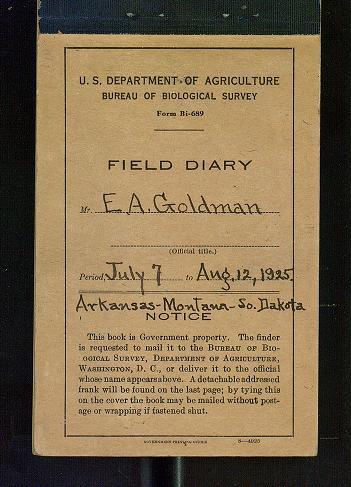 U. S. DEPARTMENT OF AGRICULTURE
BUREAU OF BIOLOGICAL SURVEY
Form Bi-689
FIELD DIARY
Mr. E. A. Goldman
(Official title.)
Period, July 7 to Aug. 12, 1925.
Arkansas-Montana-So. Dakota
NOTICE
This book is Government property. The finder
is requested to mail it to the BUREAU OF BIO-
OGICAL SURVEY, DEPARTMENT OF AGRICULTURE,
WASHINGTON, D. C., or deliver it to the official
whose name appears above. A detachable addressed
frank will be found on the last page; by tying this
on the cover the book may be mailed without post-
age or wrapping if fastened shut.
GOVERNMENT PRINTING OFFICE